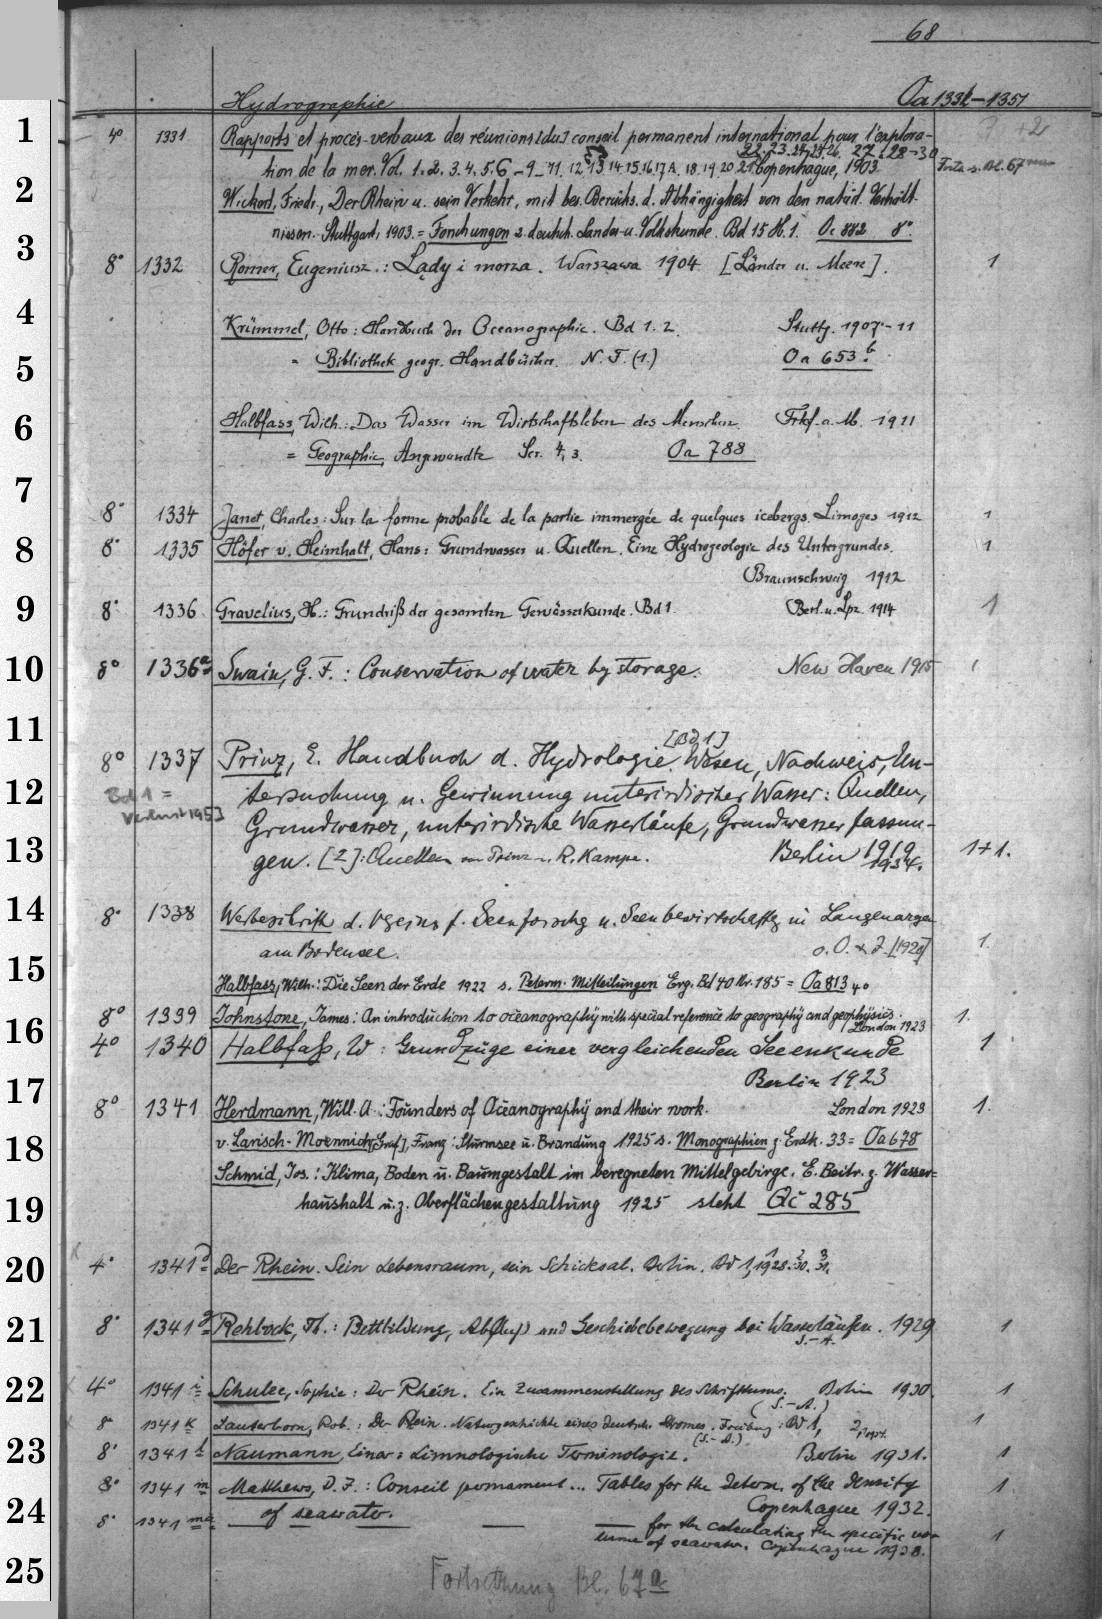 68
Hydrographie Oa 1331-1351
1
4° 1331 Rapports et procès-verbaux des réunions [du] conseil permanent international pour l'explora-
22. 23. 24. 25. 26. 27. 28-30
tion de la mer. Vol. 1. 2. 3. 4. 5. 6 - 9 - 11. 12 13 14. 15. 16. 17A. 18. 19. 20. 21. Copenhague, 1903 Forts. s. Bl. 67
2
Wickert, Friedr., Der Rhein u. sein Verkehr, mit bes. Berücks. d. Abhängigkeit von den natürl. Verhält-
nissen. Stuttgart, 1903. = Forschungen z. deutsch. Landes- u. Volkskunde. Bd 15 H. 1. Oc 882 8°.
3
8° 1332 Romer, Eugeniusz.: Lądy i morza. Warszawa 1904 [Länder u. Meere]. 1
4
Krümmel, Otto: Handbuch der Oceanographie. Bd 1. 2. Stuttg. 1907-11
5
= Bibliothek geogr. Handbücher. N. F. (1.) Oa 653 b.
6
Halbfass, Wilh.: Das Wasser im Wirtschaftsleben des Menschen. Frkf. a. M. 1911
= Geographie, Angewandte Ser. 4, 3. Oa 788
7
8° 1334 Janet, Charles: Sur la forme probable de la partie immergée de quelques icebergs. Limoges 1912 1
8
8° 1335 Höfer v. Heimhalt, Hans: Grundwasser u. Quellen. Eine Hydrogeologie des Untergrundes. 1
Braunschweig 1912
9
8° 1336 Gravelius, H.: Grundriß der gesamten Gewässerkunde. Bd 1 Berl. u. Lpz. 1914 1
10
8° 1336a Swain, G. F.: Conservation of water by storage. New Haven 1915 1
11
[Bd 1]
8° 1337 Prinz, E. Handbuch d. Hydrologie. Wesen, Nachweis, Un-
12
Bd 1 =
Verlust 1953
tersuchung u. Gewinnung unterirdischer Wasser: Quellen,
Grundwasser, unterirdische Wasserläufe, Grundwasserfassun-
13
gen. [2]: Quellen von Prinz u. R. Kampe. Berlin 1919 1+1.
1934.
14
8° 1338 Werbeschrift d. Vereins f. Seenforschg u. Seenbewirtschaftg in Langenargen
am Bodensee. o. O. u. J. [1920] 1.
15
Halbfass, Wilh.: Die Seen der Erde 1922 s. Peterm. Mitteilungen Erg. Bd 40 Nr. 185 = Oa 813 4°
8° 1339 Johnstone, James: An introduction to oceanography with special reference to geography and geophysics. 1.
London 1923
16
4° 1340 Halbfaß, W: Grundzüge einer vergleichenden Seeenkunde 1
Berlin 1923
17
8° 1341 Herdmann, Will. A.: Founders of Oceanography and their work. London 1923 1.
18
v. Larisch-Moennich, [Graf], Franz: Sturmsee u. Brandung 1925 s. Monographien z. Erdk. 33 = Oa 678
Schmid, Jos.: Klima, Boden u. Baumgestalt im beregneten Mittelgebirge. E. Beitr. z. Wasser-
19
haushalt u. z. Oberflächengestaltung 1925 steht Qc 285
20
4° 1341 d Der Rhein. Sein Lebensraum, sein Schicksal. Berlin. Bd 1, 1928. 2 30. 3 31.
21
8° 1341 g Rehbock, Th.: Bettbildung, Abfluß und Geschiebebewegung bei Wasserläufen. 1929 1
S.-A.
22
4° 1341 i Schulze, Sophie: Der Rhein. Ein Zusammenstellung des Schrifttums. Berlin 1930. 1
(S.-A.)
8° 1341 k Lauterborn, Rob.: Der Rhein. Naturgeschichte eines deutsch. Stromes. Freiburg: Bd 1, 1
(S.-A.)
23
8° 1341 l Naumann, Einar: Limnologische Terminologie. Berlin 1931. 1
8° 1341 m Matthews, D. J.: Conseil permament ... Tables for the Determ. of the Density 1
24
of seawater. Copenhague 1932.
8° 1341 ma — — — for the calculating the specific vo- 1
lume of seawater. Copenhague 1938.
25
Fortsetzung Bl. 67a